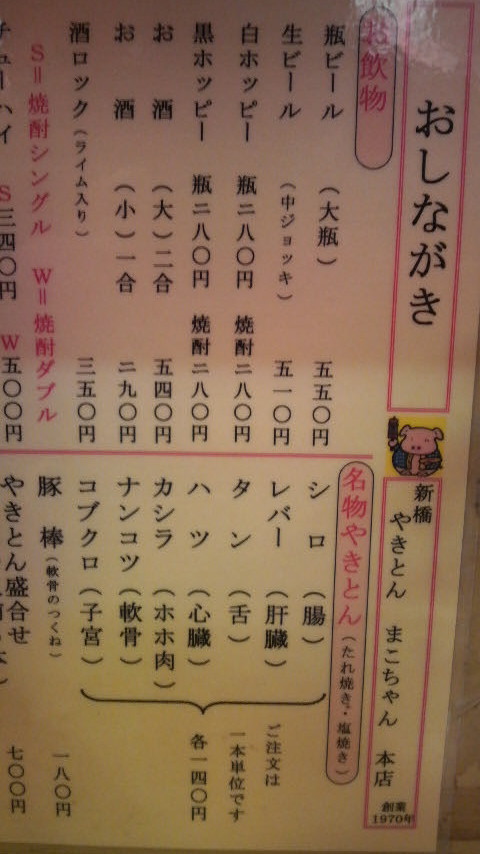 おしながき
新橋 やきとん まこちゃん 本店
創業
1970年
お飲物
瓶ビール (大瓶) 五五〇円
生ビール (中ジョッキ) 五一〇円
白ホッピー 瓶二八〇円 焼酎二八〇円
黒ホッピー 瓶二八〇円 焼酎二八〇円
お酒 (大)二合 五四〇円
お酒 (小)一合 二九〇円
酒ロック(ライム入り) 三五〇円
S=焼酎シングル W=焼酎ダブル
チューハイ S三四〇円 W五〇〇円
名物やきとん(たれ焼き・塩焼き)
シロ (腸)
レバー (肝臓)
タン (舌)
ハツ (心臓)
カシラ (ホホ肉)
ナンコツ (軟骨)
コブクロ (子宮)
ご注文は
一本単位です
各一四〇円
豚棒(軟骨のつくね) 一八〇円
やきとん盛合せ 七〇〇円